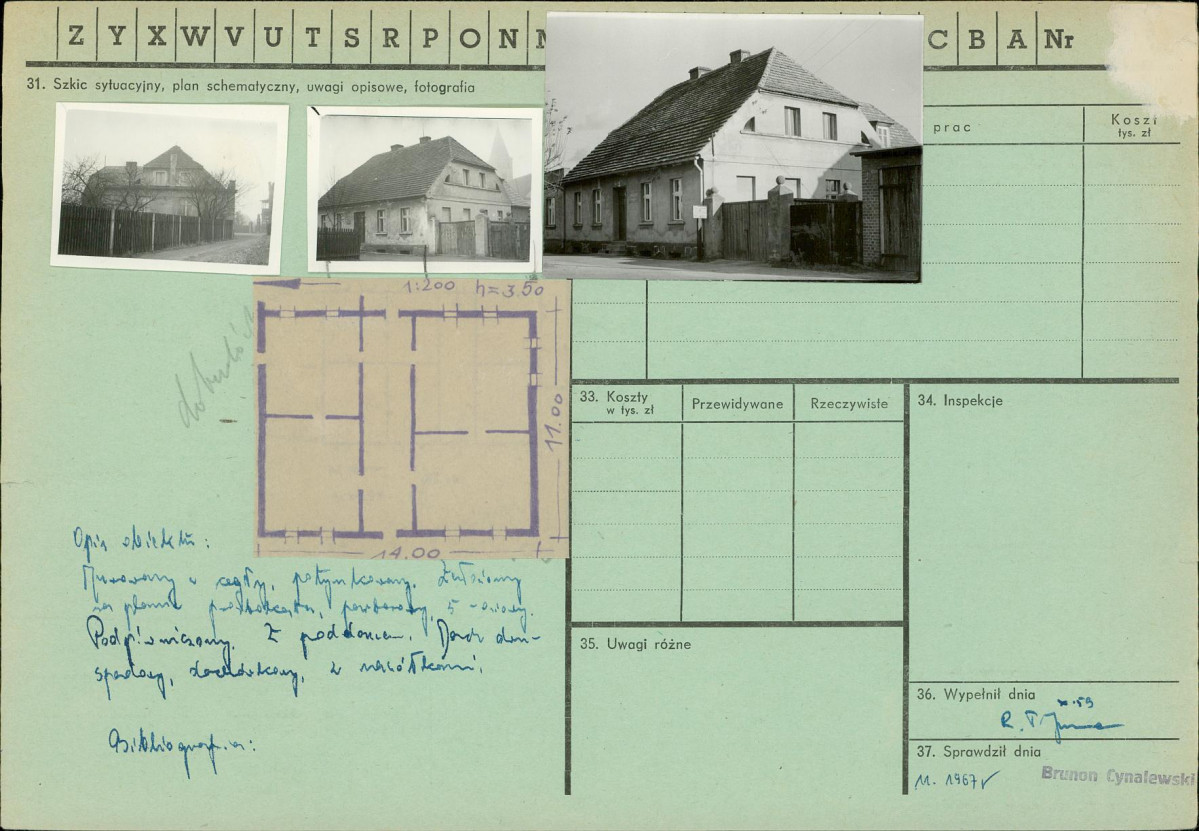 Z Y X W V U T S R P O N C B A Nr
31. Szkic sytuacyjny, plan schematyczny, uwagi opisowe, fotografia
prac
Koszt
tys. zł
1:200 h=3.50
11.00
14.00
Opis obiektu:
Murowany z cegły, potynkowany. Założony
na planie prostokąta, parterowy, 5-osiowy.
Podpiwniczony. Z poddaszem. Dach dwu-
spadowy, dachówkowy, z naczółkami.
Bibliografia:
33. Koszty
w tys. zł
Przewidywane
Rzeczywiste
34. Inspekcje
35. Uwagi różne
36. Wypełnił dnia
37. Sprawdził dnia
11. 1967
Brunon Cynalewski